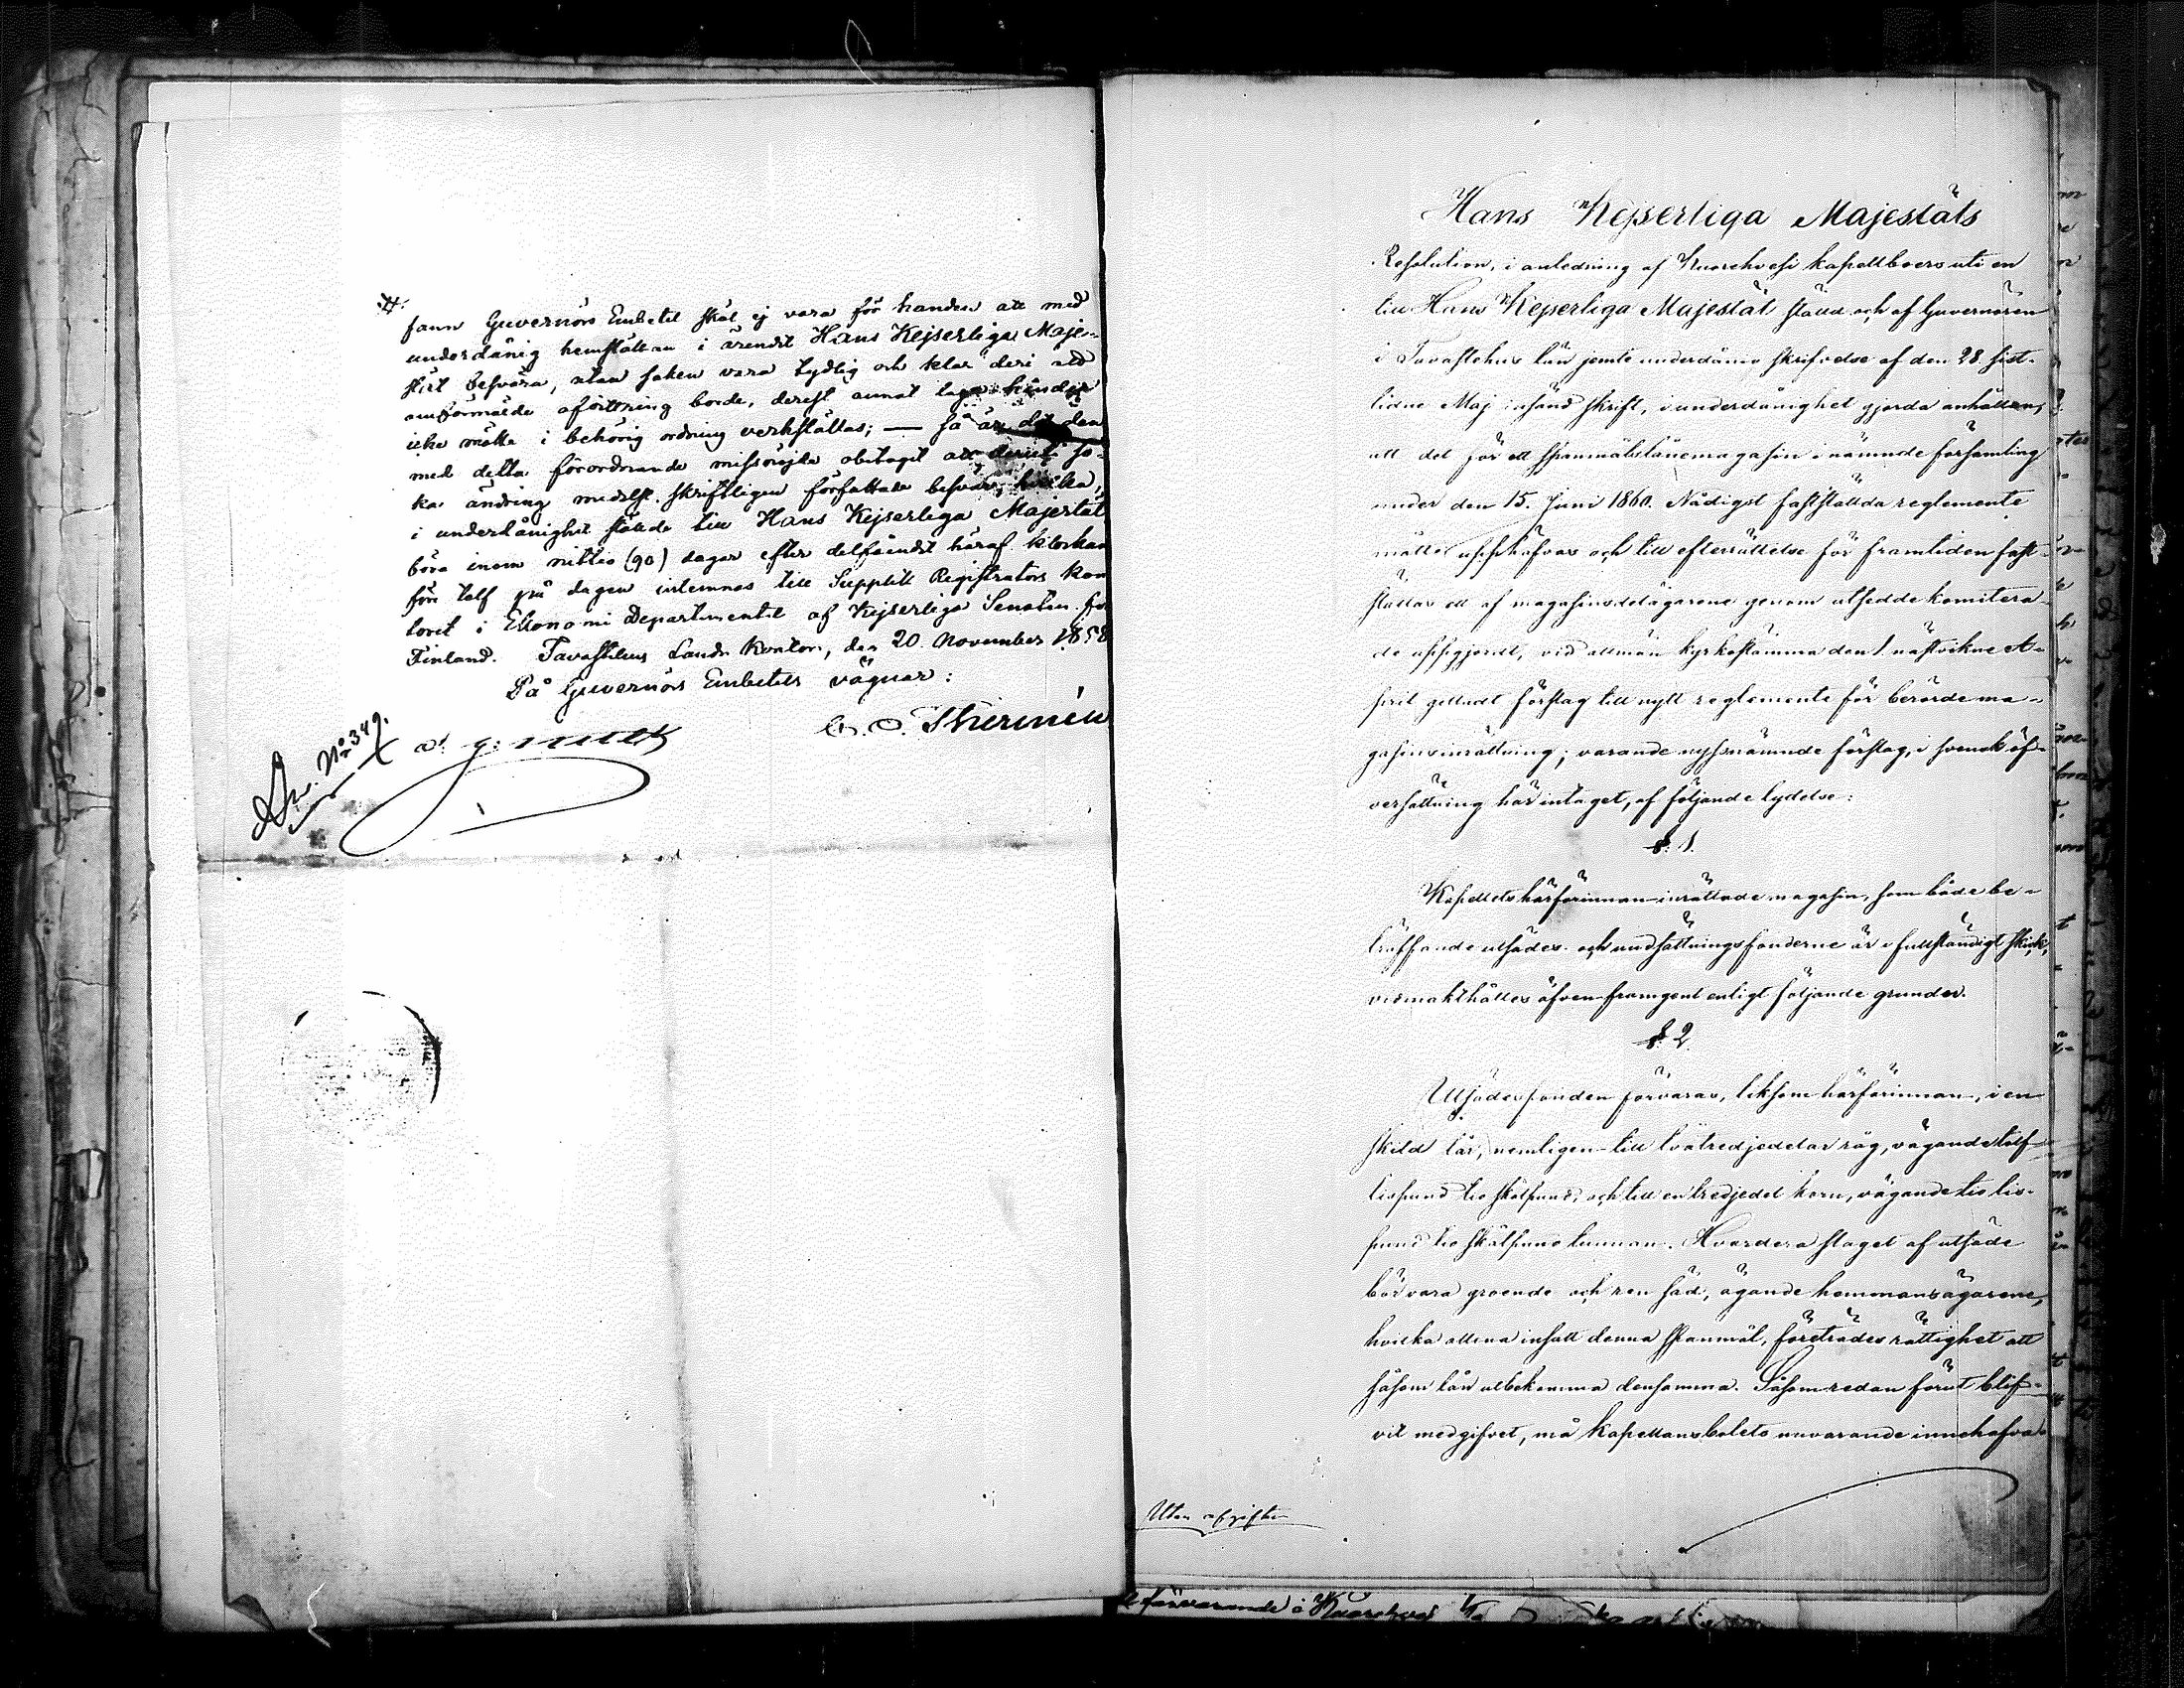 fann Guvernörs Embetet skäl ej vara för handen att med
underdånig hemställan i ärendet Hans Kejserliga Maje-
stät besvära, utan saken vara tydlig och klar deri att
omförmälde afsöttring borde, derest annat laga hinder
icke mötte i behörig ordning verkställas; — så är det den
med detta förordnande missnöjda obetaget att deri sö-
ka ändring medelst skriftligen författade besvär, hvilka,
i underdånighet stälde till Hans Kejserliga Majestät
böra inom nittio (90) dagar efter delfåendet häraf klockan
före tolf på dagen inlemnas till Supplik Registrators kon
toret i Ekonomi Departementet af Kejserliga Senaten för
Finland. Tavastehus Lands Kontor, den 20 November 1858
På Guvernörs Embetets vägnar:
C. O. Therméн
No 349.
Hans Kejserliga Majestäts
Resolution, i anledning af Kuorehvesi kapellboers uti en
till Hans Kejserliga Majestät ställd och af Guvernören
i Tavastehus län jemte underdånig skrifvelse af den 28 sist-
lidne Maj insänd skrift, i underdånighet gjorda anhållan,
att det för ett spannmålslånemagasin i nämnde församling
under den 15. Juni 1860. Nådigst fastställda reglemente
måtte upphäfvas och till efterrättelse för framtiden fast-
ställas ett af magasinsdelägarene genom utsedde komitera-
de uppgjordt, vid allmän kyrkostämma den 1 nästvikne A-
pril gilladt förslag till nytt reglemente för berörde ma-
gasinsinrättning; varande nyssnämnde förslag, i svensk öf-
versättning här intaget, af följande lydelse:
§. 1.
Kapellets härförinnan inrättade magasin, som både be-
träffande utsädes- och undsättningsfonderne är i fullständigt skick,
vidmakthålles äfven framgent enligt följande grunder.
§. 2.
Utsädesfonden förvaras, liksom härförinnan, i en
skild lår, nemligen till tvåtredjedelar råg, vägande tolf
lispund tio skålpund, och till en tredjedel korn, vägande tio lis-
pund tio skålpund tunnan. Hvardera slaget af utsäde
bör vara groende och ren säd, ägande hemmansägarene,
hvilka allena insatt denna spannmål, företrädesrättighet att
såsom lån utbekomma densamma. Såsom redan förut blif-
vit medgifvet, må kapellansbolets nuvarande innehafva-
Utan afgift
förvarande i Kuorehvesi